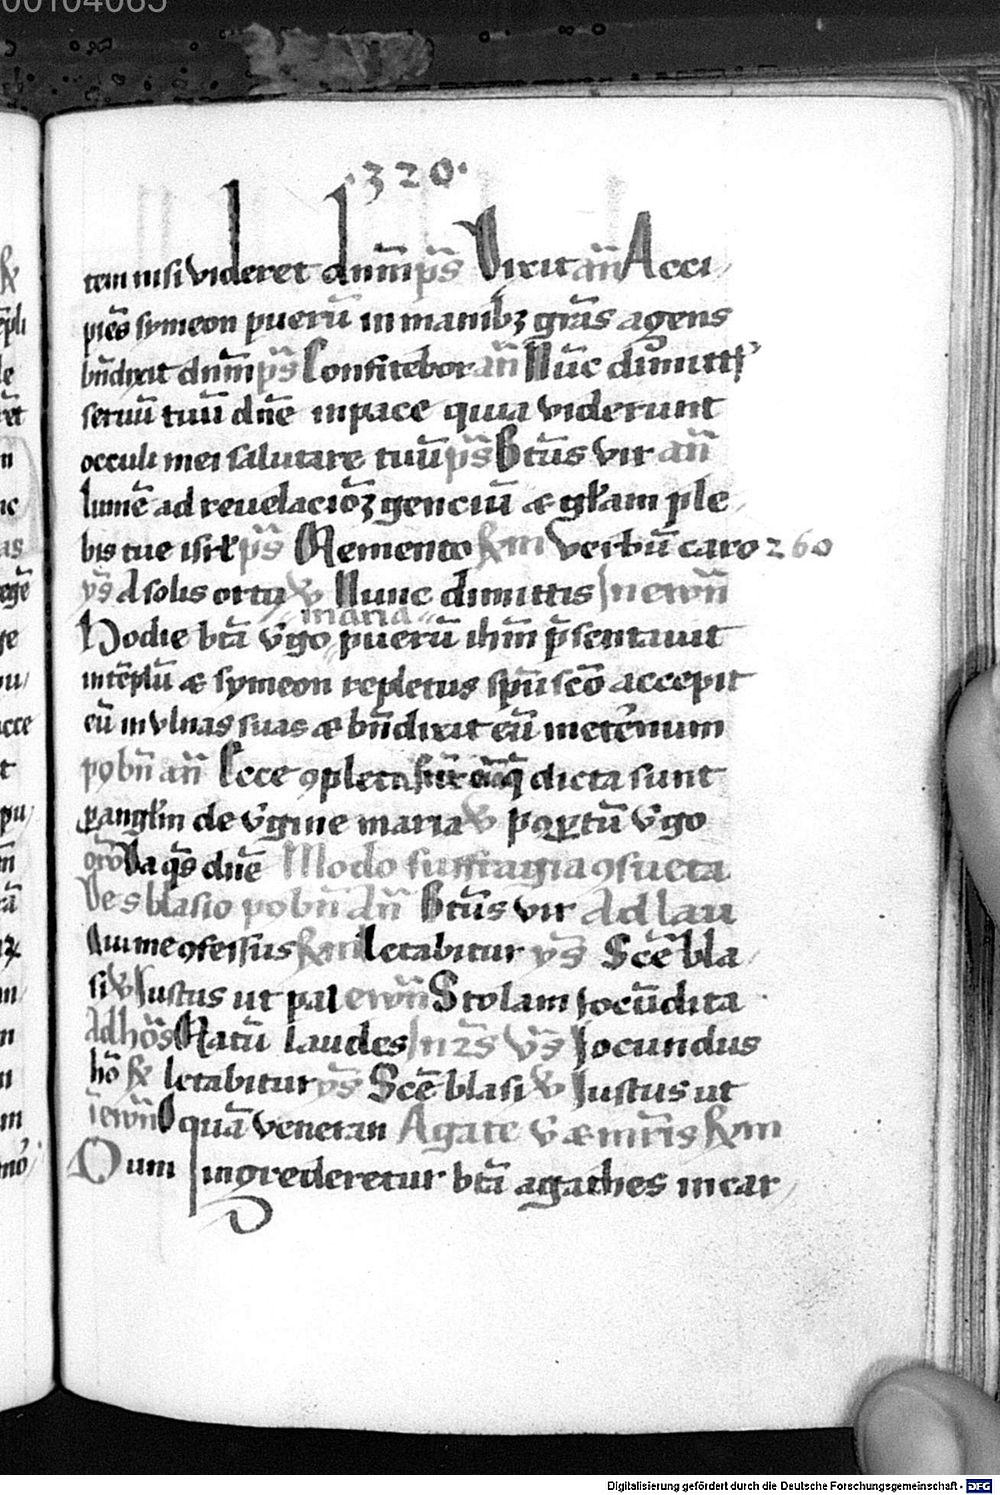 00104065
·320·
tem nisi videret dn̄m ps̄ Dixit an̄ Acci
piēs symeon puerū in manibꝫ grās agens
bn̄dixit dn̄m ps̄ Confitebor an̄ Nūc dimittis
seruū tuū dn̄e in pace quia viderunt
occuli mei salutare tuū ps̄ Btūs vir an̄
lumē ad reuelaciōꝫ genciū et gl̄am ple
bis tue isrl̄ ps̄ Memento Verbū caro 260
ys̄ A solis ortu Nunc dimittis In ewn̄
maria
Hodie btā v̄go puerū ihm̄ p̄sentauit
in tēplū et symeon repletus spū scō accepit
eū in vlnas suas et bn̄dixit eū in eternum
an̄ Ecce ꝯpleta sūt dicta sunt
ꝑ angl̄m de v̄gine maria v̄ ꝑtū v̄go
orō Da qs̄ dn̄e Modo suffragia ꝯsueta
De s blasio an̄ Btūs vir Ad lau
ꝯfessus letabitur ys̄ Scē bla
si Iustus ut pal ewn̄ Stolam iocūdita
Ad hōs Natū laudes In 2s̄ vs̄ Iocundus
hō letabitur ys̄ Scē blasi Iustus ut
ī ewn̄ O quā veneran Agate v̄ et mr̄is
Dum ingrederetur btā agathes in car
Digitalisierung gefördert durch die Deutsche Forschungsgemeinschaft - DFG